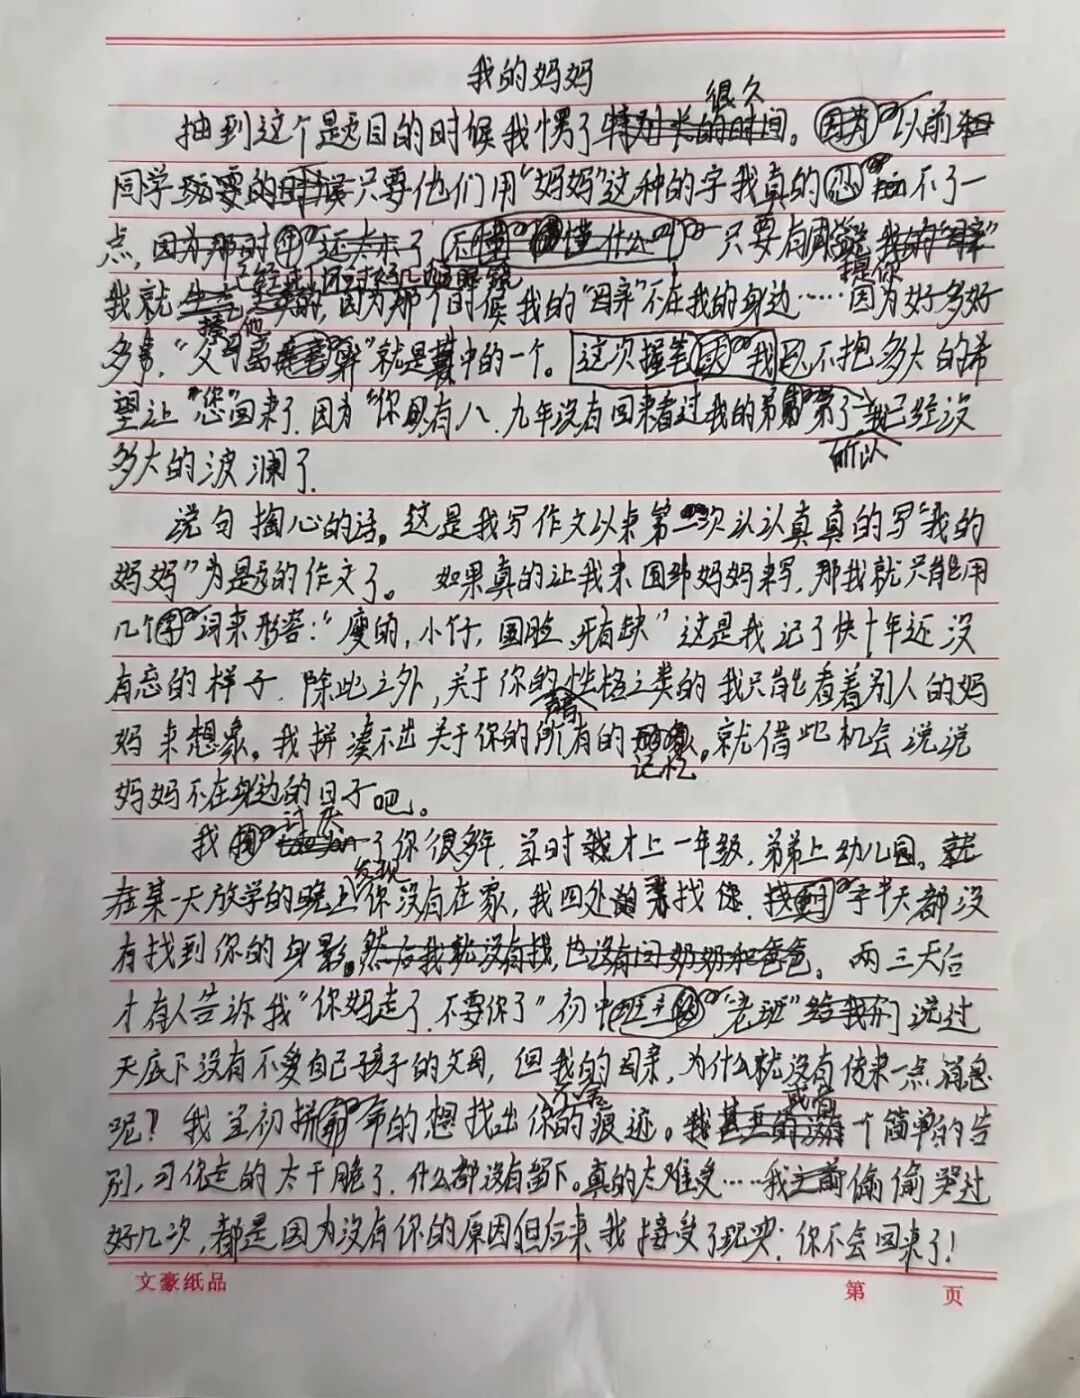 我的妈妈
很久
抽到这个题目的时候我愣了特别长的时间。因为以前
同学玩耍的时候只要他们用“妈妈”这种的字我真的忍不了一
点,因为那时还太小了 不懂什么叫 只要有同学 我的“母亲”
我就生气 真的,因为那个时候我的“母亲”不在我的身边……因为好多好
揍他
多事,“父母离异”就是其中的一个。这次提笔 我已不抱多大的希
望让“您”回来了,因为“你”有八、九年没有回来看过我的弟弟了 我已经没
所以
多大的波澜了.
说句掏心的话。这是我写作文以来第一次认认真真的写“我的
妈妈”为题的作文了。如果真的让我来围绕妈妈来写,那我就只能用
几个词来形容:“瘦的,小仔,圆脸,牙有缺”这是我记了快十年还没
有忘的样子.除此之外,关于你的性格之类的我只能看着别人的妈
妈来想象。我拼凑不出关于你的所有的 就借此机会说说
声音
记忆
妈妈不在身边的日子吧。
讨厌
我 了你很多年,当时我才上一年级,弟弟上幼儿园。就
发现
在某一天放学的晚上你没有在家,我四处的寻找 您.找 半天都没
有找到你的身影。然后我就没有找,也没有问奶奶和爸爸。两三天后
才有人告诉我“你妈走了,不要你了”初中班主任“老班”给我们说过
天底下没有不爱自己孩子的父母,但我的母亲,为什么就没有传来一点消息
呢?我 当初拼命的想找出你的痕迹。我甚至的没有一个简单的告
或者
别,可你走的太干脆了.什么都没有留下。真的太难受……我之前偷偷哭过
好几次,都是因为没有你的原因但后来我接受了现实:你不会回来了!
文豪纸品
第 页